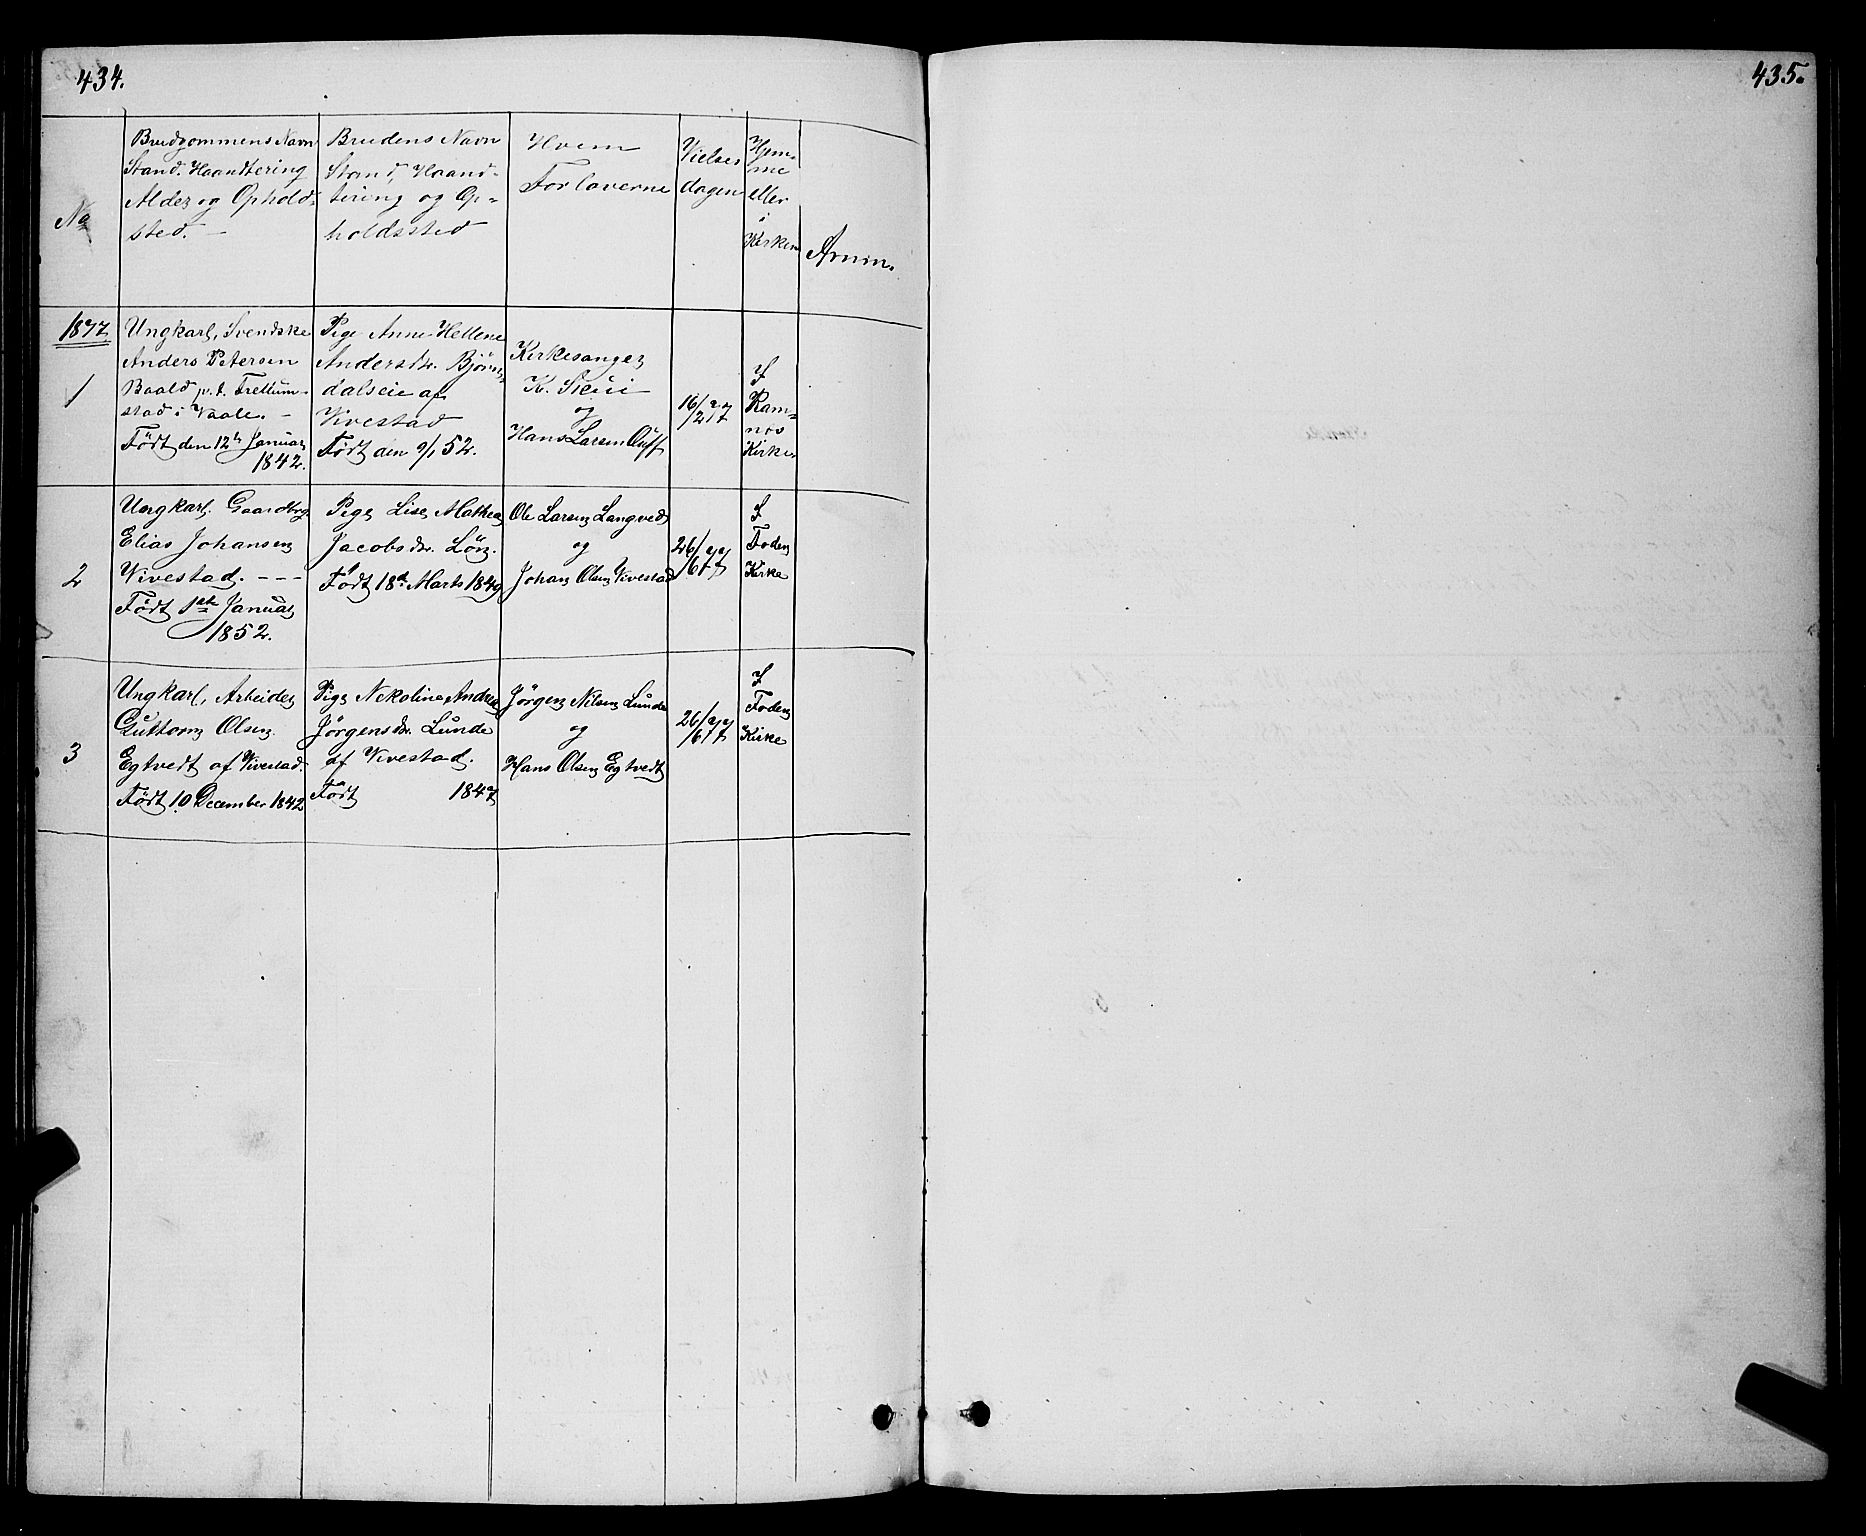 434.
No
Brudgommens Navn
Stand. Haandtering
Alder og Ophold-
sted. -
Brudens Navn
Stand, Haand-
tering og Op-
holdssted
Hvem
Forloverne
Vielses
dagen
Hjem-
me
eller
i
Kirken
Anmn.
1877
1
Ungkarl, Svenske
Anders Petersen
Baald p.t. Trellum-
stad i Vaale. -
Födt den 12te Januar
1842.
Pige Anne Hellene
Andersdr. Björn-
dalseie af
Vivestad
Födt den 9/1 52.
Kirkesanger
K. Skui
og
Hans Larsen
16/2 77
I
Ram-
nøs
Kirke.
2
Ungkarl, Gaardbrg
Elias Johansen
Vivestad. ---
Födt 1ste Januar
1852.
Pige Lise Mathea
Jacobsdr. Lön.
Födt 18de Marts 1849
Ole Larsen Langved
og
Johan Olsen Vivestad
26/6 77
I
Foden
Kirke
3
Ungkarl, Arbeider
Guttorm Olsen
Egtvedt af Vivestad.
Födt 10 December 1842
Pige Nekoline Andrea
Jörgensdr. Lunde
af Vivestad.
Födt 1847
Jörgen Nilsen Lunde
og
Hans Olsen Egtvedt
26/6 77
I
Foden
Kirke
435.